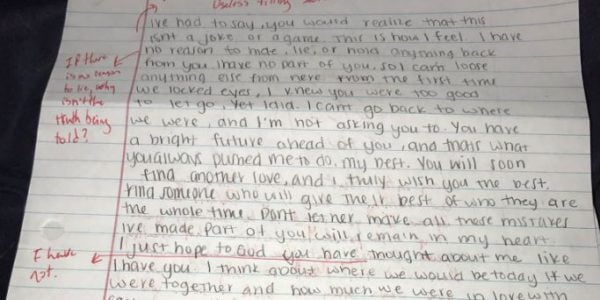 Useless filling
ive had to say, you would realize that this
isnt a joke, or a game. This is how I feel. I have
no reason to hide, lie, or hold anything back
from you. I have no part of you, so I can't loose
anything else from here. From the first time
we locked eyes, I knew you were too good
to let go, Yet I did. I cant go back to where
we were, and I'm not asking you to. You have
a bright future ahead of you, and thats what
you always pushed me to do, my best. You will soon
find another love, and I truly wish you the best.
Find someone who will give their best of who they are
the whole time. Dont let her make all those mistakes
ive made. Part of you will remain in my heart.
I just hope to God you have thought about me like
I have you. I think about where we would be today if we
were together and how much we were in love with
If there
is no reason
to lie, why
isn't the
truth being
told?
I have
not.